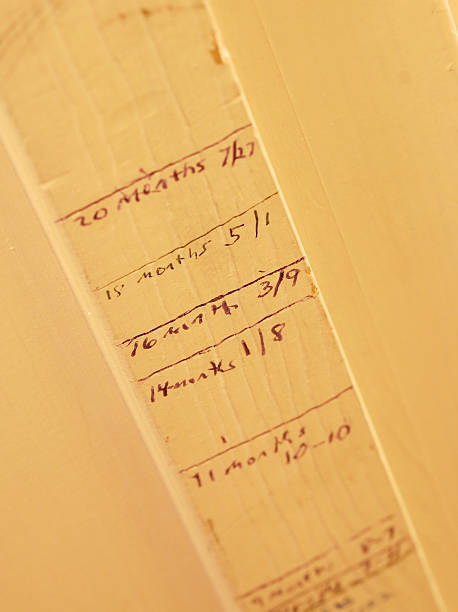 20 Months 7/27
18 months 5/1
16 month 3/9
14 months 1/8
11 months
10-10
9 Months 8-7